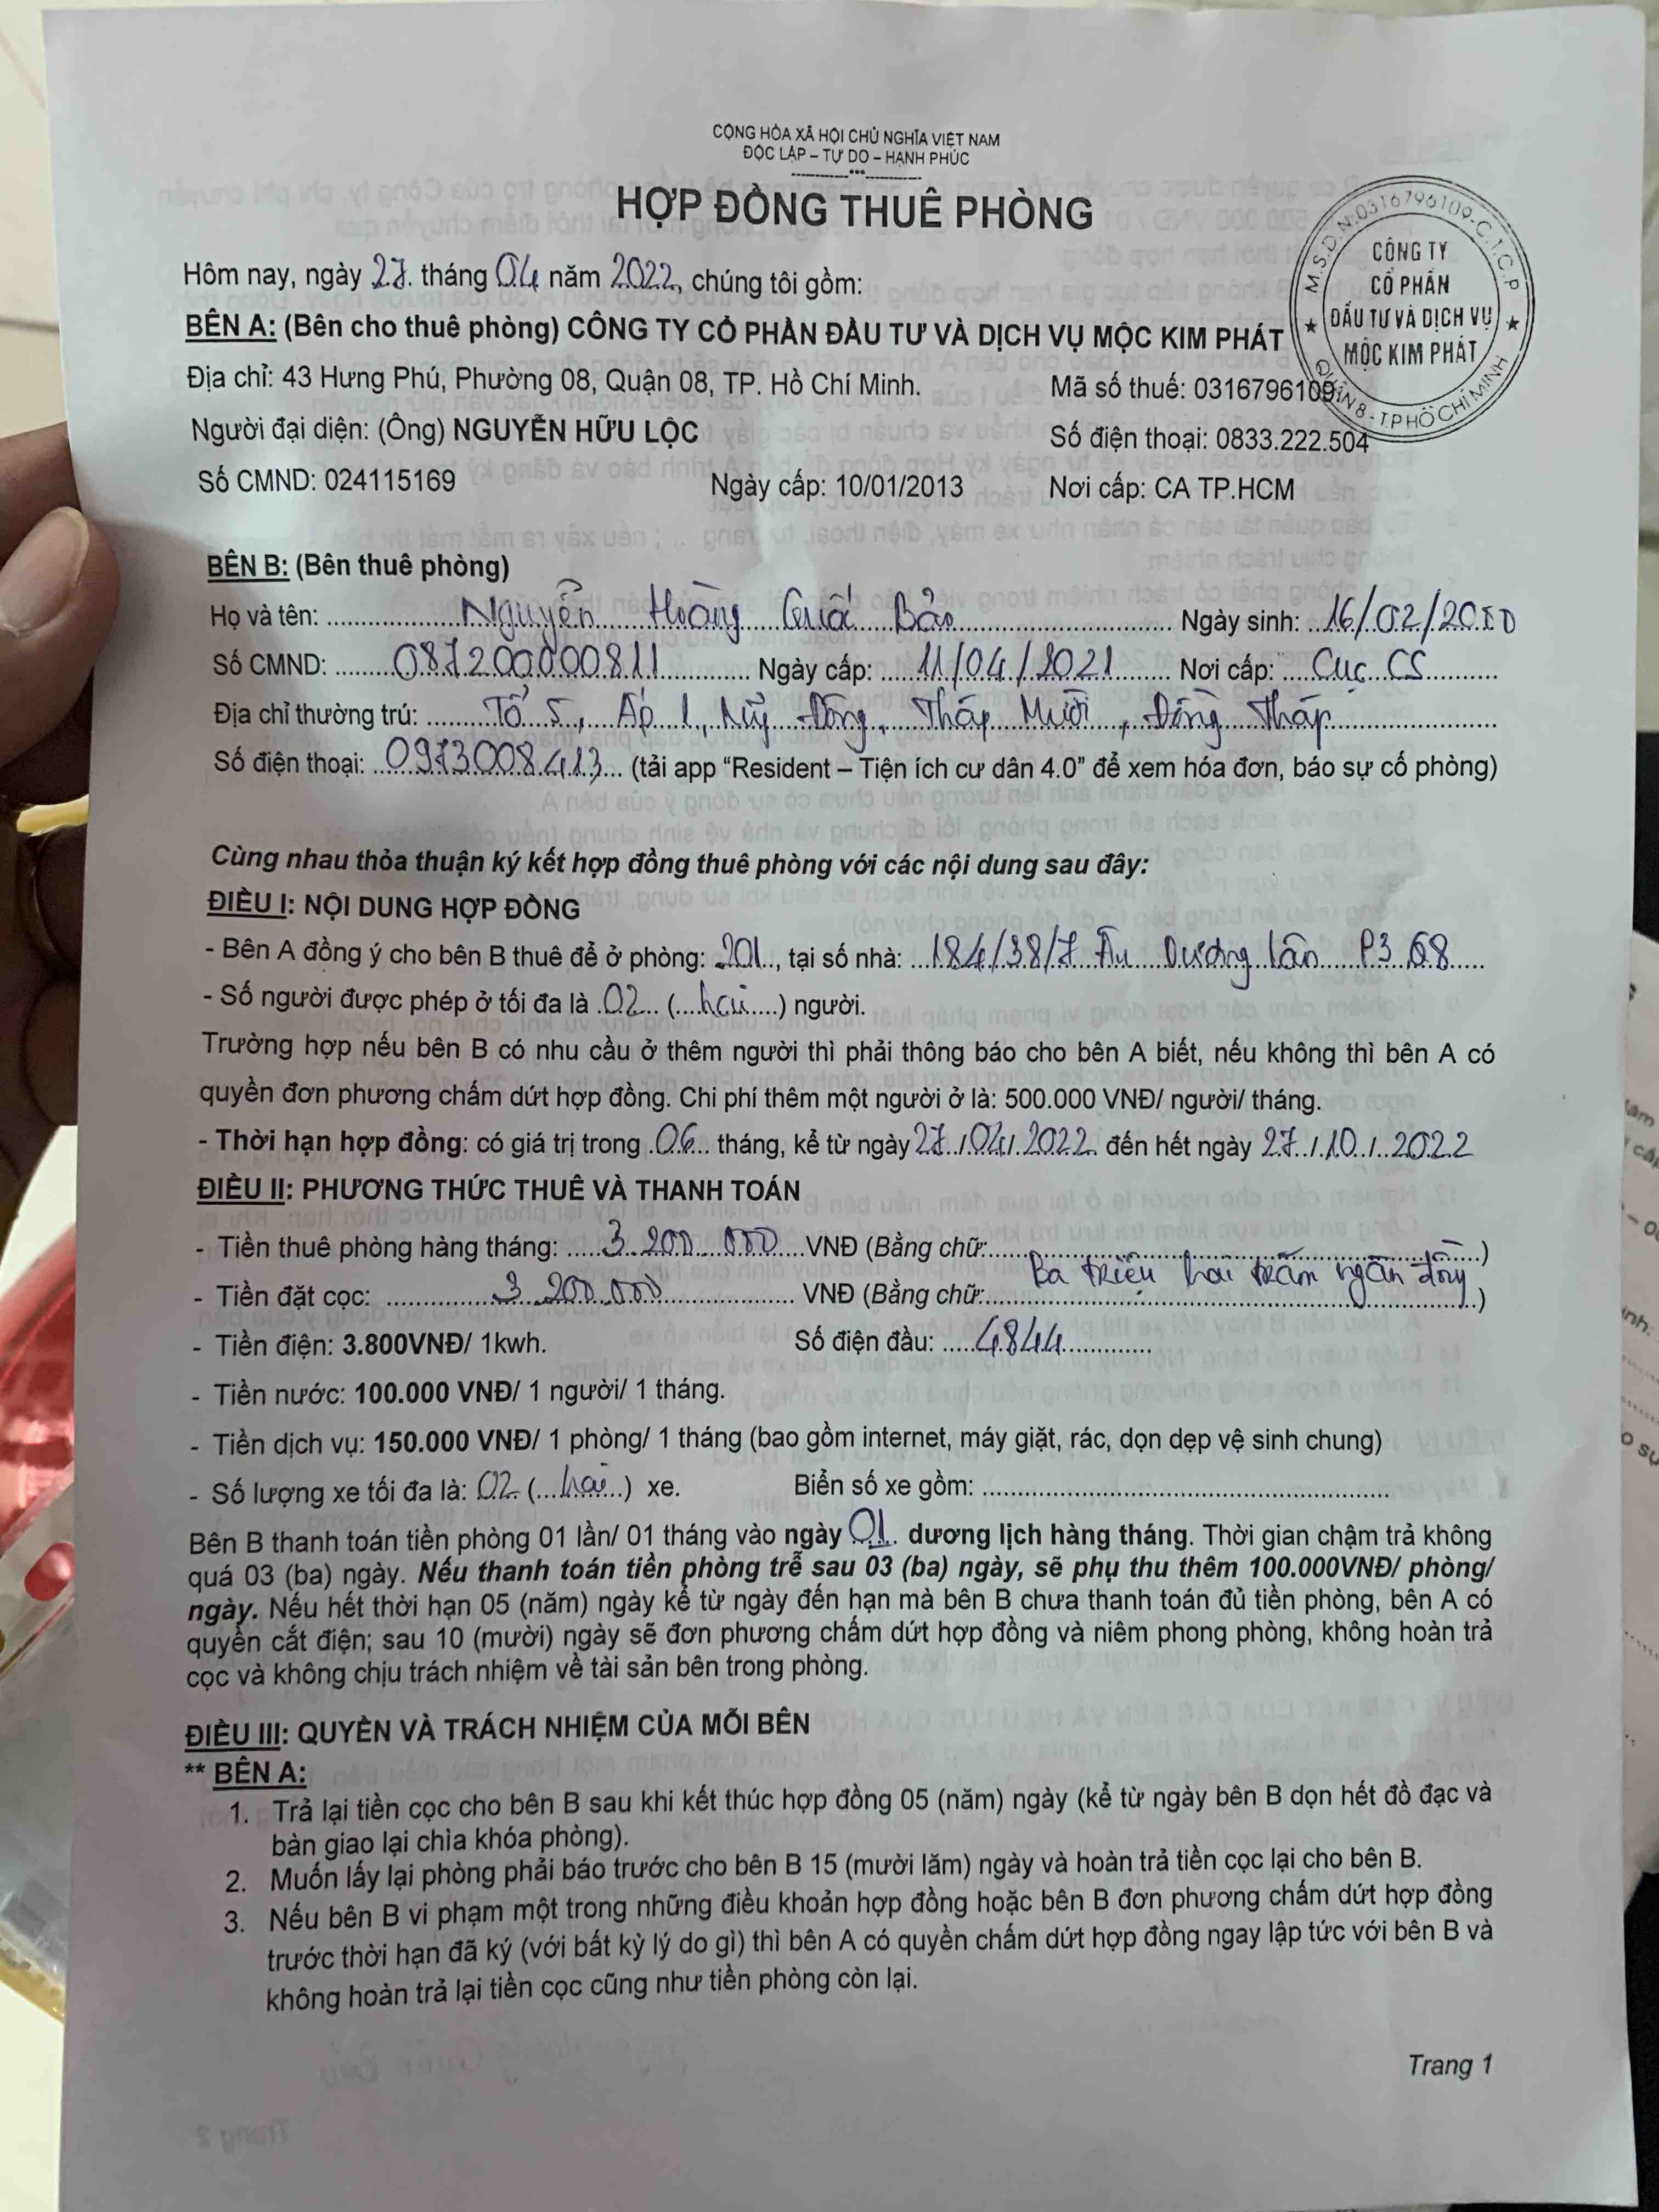 CỘNG HÒA XÃ HỘI CHỦ NGHĨA VIỆT NAM
ĐỘC LẬP – TỰ DO – HẠNH PHÚC
----------***----------
HỢP ĐỒNG THUÊ PHÒNG
M.S.D.N:0316796109-C.T.C.P
CÔNG TY
CỔ PHẦN
ĐẦU TƯ VÀ DỊCH VỤ
MỘC KIM PHÁT
QUẬN 8 - T.P HỒ CHÍ MINH
Hôm nay, ngày 27. tháng 04 năm 2022, chúng tôi gồm:
BÊN A: (Bên cho thuê phòng) CÔNG TY CỔ PHẦN ĐẦU TƯ VÀ DỊCH VỤ MỘC KIM PHÁT
Địa chỉ: 43 Hưng Phú, Phường 08, Quận 08, TP. Hồ Chí Minh. Mã số thuế: 0316796109
Người đại diện: (Ông) NGUYỄN HỮU LỘC Số điện thoại: 0833.222.504
Số CMND: 024115169 Ngày cấp: 10/01/2013 Nơi cấp: CA TP.HCM
BÊN B: (Bên thuê phòng)
Họ và tên: Nguyễn Hoàng Quốc Bảo Ngày sinh: 16/02/2000
Số CMND: 087200000811 Ngày cấp: 11/04/2021 Nơi cấp: Cục CS
Địa chỉ thường trú: Tổ 5, Ấp 1, Mỹ Đông, Tháp Mười, Đồng Tháp
Số điện thoại: 0973008413 (tải app “Resident – Tiện ích cư dân 4.0” để xem hóa đơn, báo sự cố phòng)
Cùng nhau thỏa thuận ký kết hợp đồng thuê phòng với các nội dung sau đây:
ĐIỀU I: NỘI DUNG HỢP ĐỒNG
- Bên A đồng ý cho bên B thuê để ở phòng: 201, tại số nhà: 184/38/7 Âu Dương Lân P3 Q8
- Số người được phép ở tối đa là 02 (hai) người.
Trường hợp nếu bên B có nhu cầu ở thêm người thì phải thông báo cho bên A biết, nếu không thì bên A có
quyền đơn phương chấm dứt hợp đồng. Chi phí thêm một người ở là: 500.000 VNĐ/ người/ tháng.
- Thời hạn hợp đồng: có giá trị trong 06 tháng, kể từ ngày 27/04/2022 đến hết ngày 27/10/2022
ĐIỀU II: PHƯƠNG THỨC THUÊ VÀ THANH TOÁN
- Tiền thuê phòng hàng tháng: 3.200.000 VNĐ (Bằng chữ: )
Ba triệu hai trăm ngàn đồng
- Tiền đặt cọc: 3.200.000 VNĐ (Bằng chữ: )
- Tiền điện: 3.800VNĐ/ 1kwh. Số điện đầu: 4844
- Tiền nước: 100.000 VNĐ/ 1 người/ 1 tháng.
- Tiền dịch vụ: 150.000 VNĐ/ 1 phòng/ 1 tháng (bao gồm internet, máy giặt, rác, dọn dẹp vệ sinh chung)
- Số lượng xe tối đa là: 02 (hai) xe. Biển số xe gồm:
Bên B thanh toán tiền phòng 01 lần/ 01 tháng vào ngày 01. dương lịch hàng tháng. Thời gian chậm trả không
quá 03 (ba) ngày. Nếu thanh toán tiền phòng trễ sau 03 (ba) ngày, sẽ phụ thu thêm 100.000VNĐ/ phòng/
ngày. Nếu hết thời hạn 05 (năm) ngày kể từ ngày đến hạn mà bên B chưa thanh toán đủ tiền phòng, bên A có
quyền cắt điện; sau 10 (mười) ngày sẽ đơn phương chấm dứt hợp đồng và niêm phong phòng, không hoàn trả
cọc và không chịu trách nhiệm về tài sản bên trong phòng.
ĐIỀU III: QUYỀN VÀ TRÁCH NHIỆM CỦA MỖI BÊN
** BÊN A:
1. Trả lại tiền cọc cho bên B sau khi kết thúc hợp đồng 05 (năm) ngày (kể từ ngày bên B dọn hết đồ đạc và
bàn giao lại chìa khóa phòng).
2. Muốn lấy lại phòng phải báo trước cho bên B 15 (mười lăm) ngày và hoàn trả tiền cọc lại cho bên B.
3. Nếu bên B vi phạm một trong những điều khoản hợp đồng hoặc bên B đơn phương chấm dứt hợp đồng
trước thời hạn đã ký (với bất kỳ lý do gì) thì bên A có quyền chấm dứt hợp đồng ngay lập tức với bên B và
không hoàn trả lại tiền cọc cũng như tiền phòng còn lại.
Trang 1